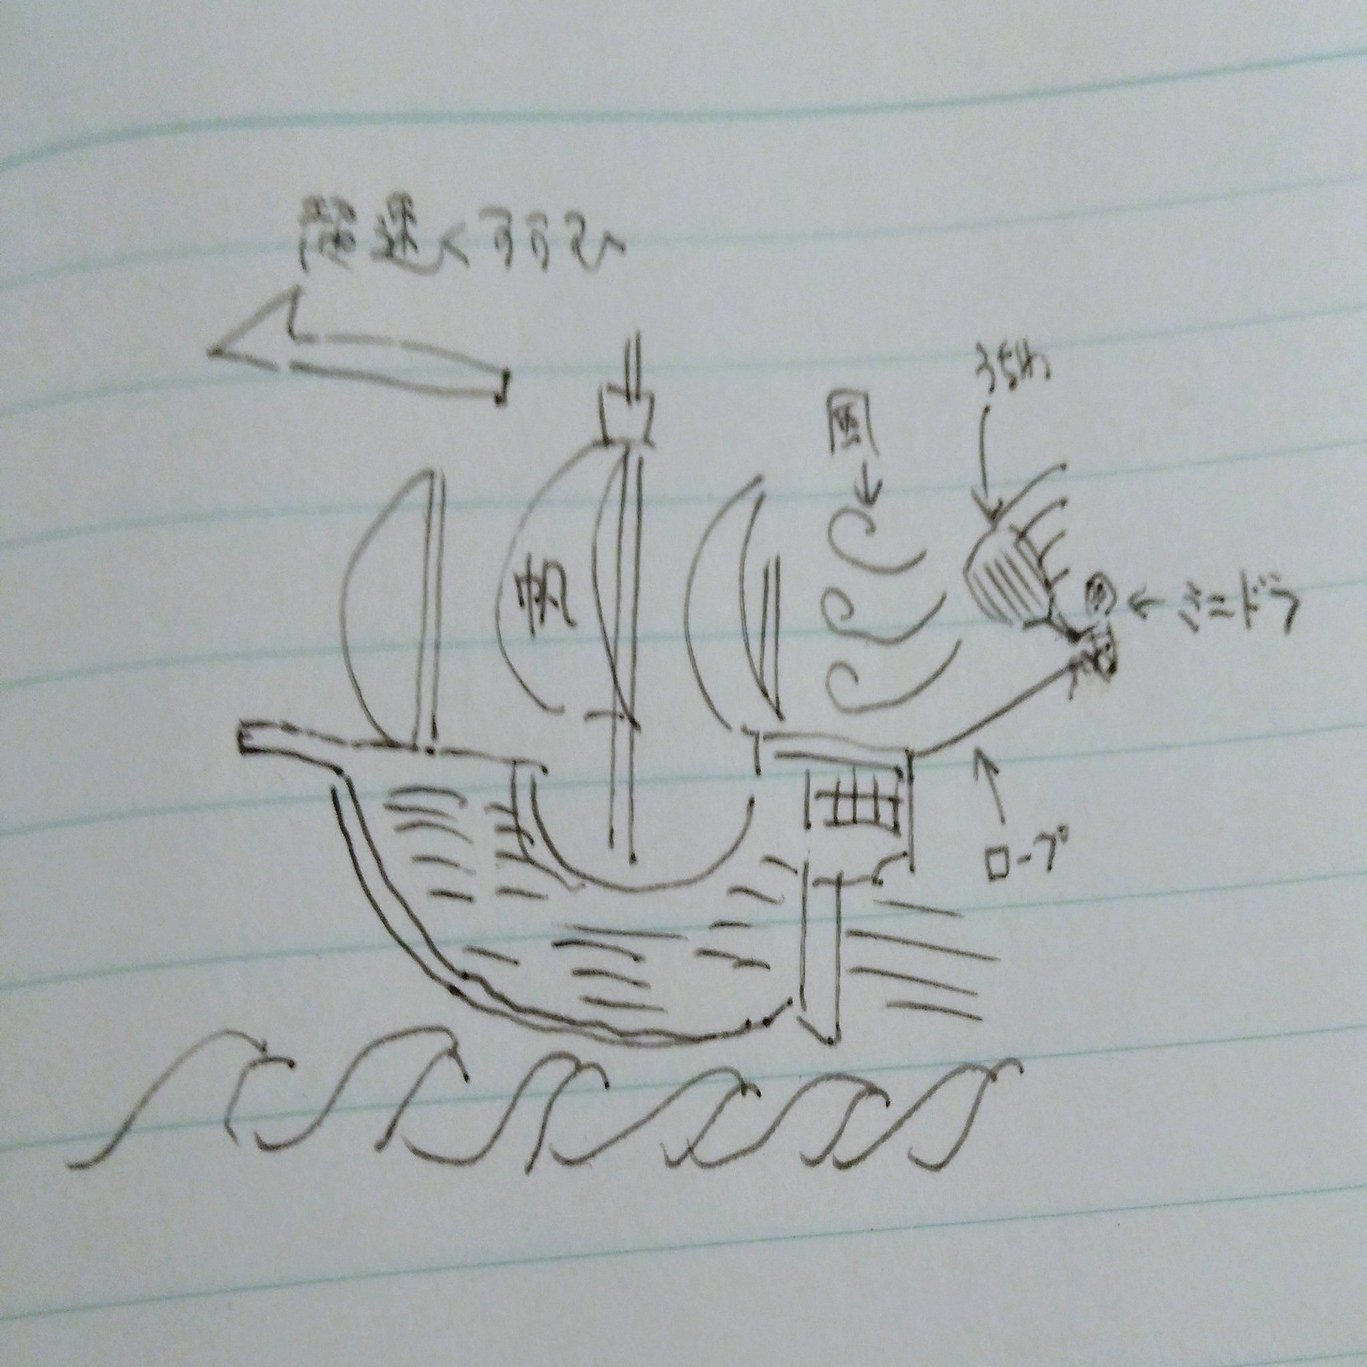 速くすすむ
うちわ
風
帆
← ミニドラ
ロープ